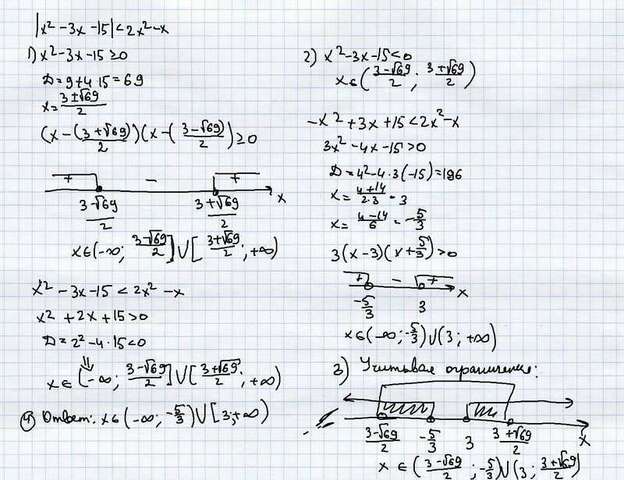 |x² - 3x - 15| < 2x² - x
1) x² - 3x - 15 ≥ 0
D = 9 + 4·15 = 69
x = (3±√69)/2
(x - (3+√69)/2)(x - (3-√69)/2) ≥ 0
+ - + x
(3-√69)/2 (3+√69)/2
x ∈ (-∞; (3-√69)/2] ∪ [(3+√69)/2; +∞)
x² - 3x - 15 < 2x² - x
x² + 2x + 15 > 0
D = 2² - 4·15 < 0
⇓
x ∈ (-∞; (3-√69)/2] ∪ [(3+√69)/2; +∞)
4) Ответ: x ∈ (-∞; -5/3) ∪ [3; +∞)
2) x² - 3x - 15 < 0
x ∈ ((3-√69)/2; (3+√69)/2)
-x² + 3x + 15 < 2x² - x
3x² - 4x - 15 > 0
D = 4² - 4·3(-15) = 196
x = (4+14)/(2·3) = 3
x = (4-14)/6 = -5/3
3(x - 3)(x + 5/3) > 0
+ - + x
-5/3 3
x ∈ (-∞; -5/3) ∪ (3; +∞)
3) Учитывая ограничения:
(3-√69)/2 -5/3 3 (3+√69)/2 x
x ∈ ((3-√69)/2; -5/3) ∪ (3; (3+√69)/2)